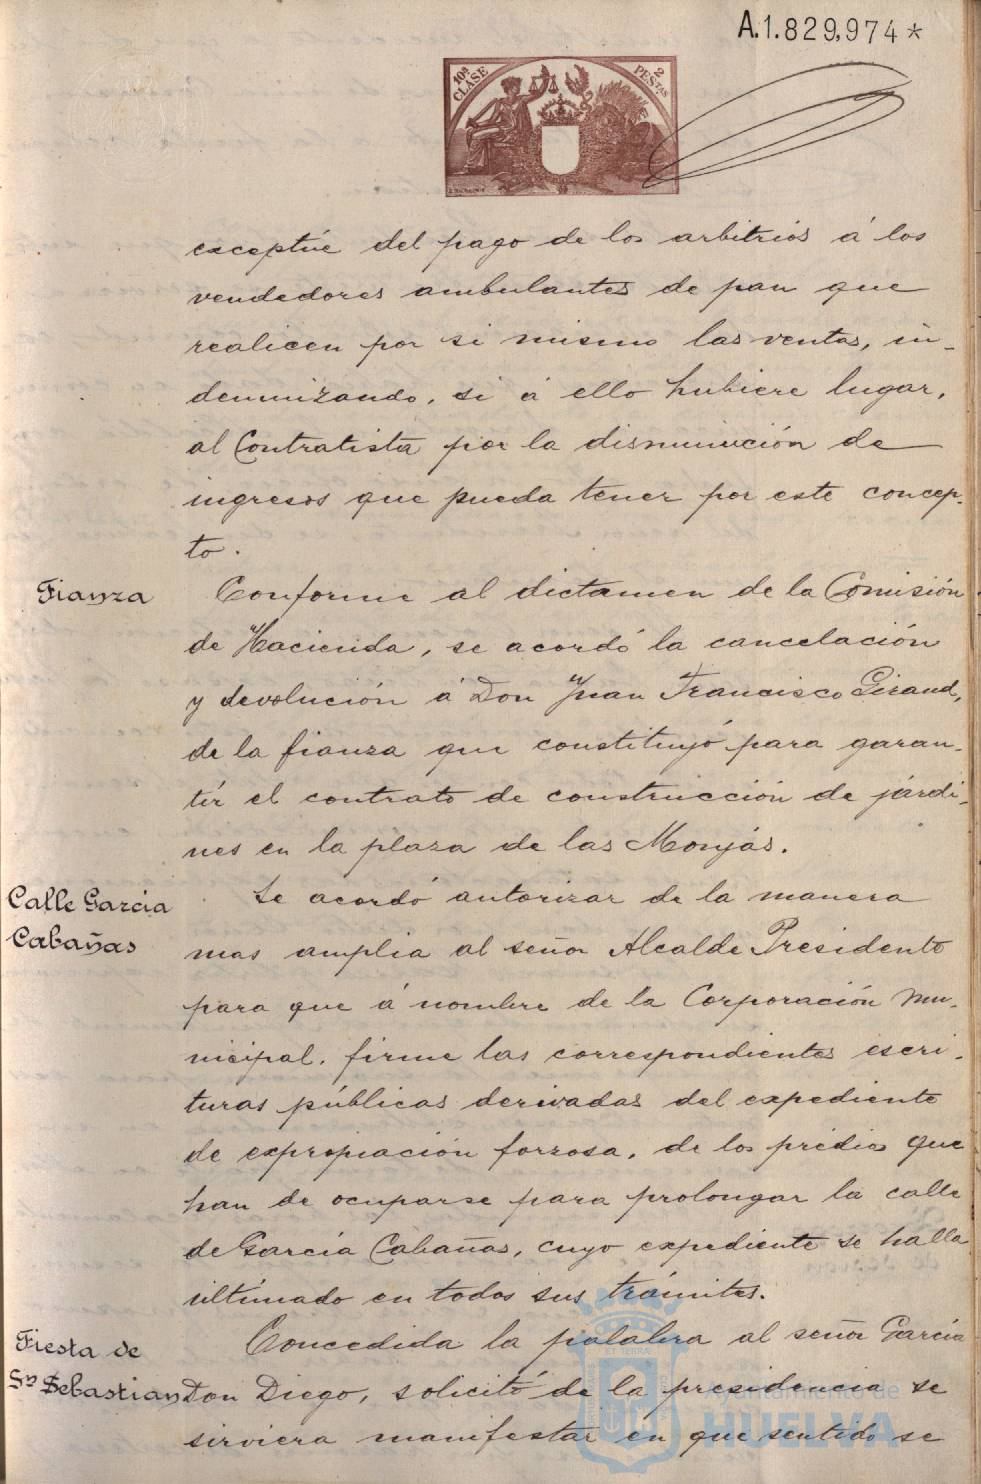 A.1.829,974*
10ª CLASE
2 PESTAS
exceptúe del pago de los arbitrios á los
vendedores ambulantes de pan que
realicen por si mismo las ventas, in-
demnizando, si á ello hubiere lugar,
al Contratista por la disminución de
ingresos que pueda tener por este concep-
to.
Fianza
Conforme al dictamen de la Comisión
de Hacienda, se acordó la cancelación
y devolución á Don Juan Francisco Giraud,
de la fianza que constituyó para garan-
tir el contrato de construcción de jardi-
nes en la plaza de las Monjas.
Calle Garcia
Cabañas
Se acordó autorizar de la manera
mas amplia al señor Alcalde Presidente
para que á nombre de la Corporación Mu-
nicipal, firme las correspondientes escri-
turas públicas derivadas del expediente
de expropiación forzosa, de los predios que
han de ocuparse para prolongar la calle
de García Cabañas, cuyo expediente se halla
ultimado en todos sus trámites.
Fiesta de
Sn Sebastian
Concedida la palabra al señor García
Don Diego, solicitó de la presidencia se
sirviera manifestar en que sentido se
Ayuntamiento de
HUELVA